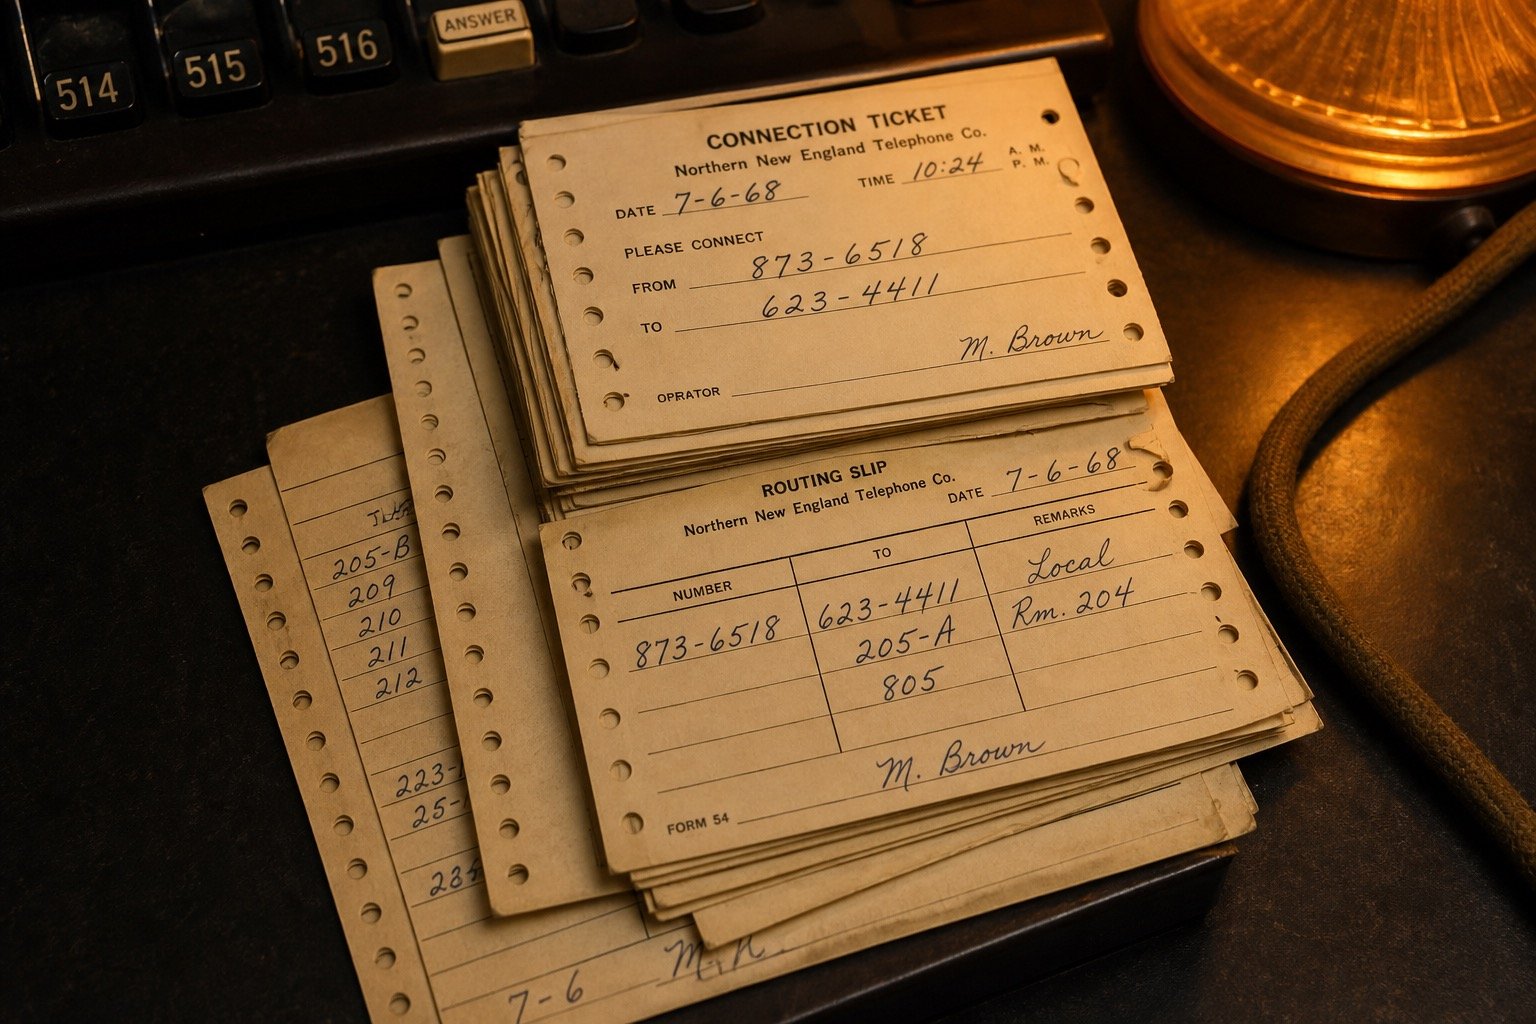 514 515 516 ANSWER
CONNECTION TICKET
Northern New England Telephone Co.
DATE 7-6-68 TIME 10:24 A. M. P. M.
PLEASE CONNECT
FROM 873-6518
TO 623-4411
M. Brown
OPRATOR
ROUTING SLIP
Northern New England Telephone Co.
DATE 7-6-68
NUMBER TO REMARKS
873-6518 623-4411 Local
205-A Rm. 204
805
M. Brown
FORM 54
205-B
209
210
211
212
223-
25-
7-6